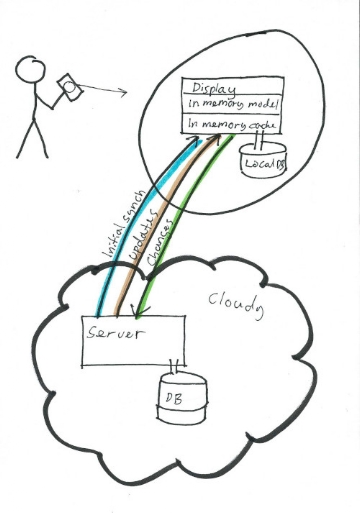 Display
in memory model
In memory cache
Local DB
Initial synch
updates
Changes
Cloudy
Server
DB